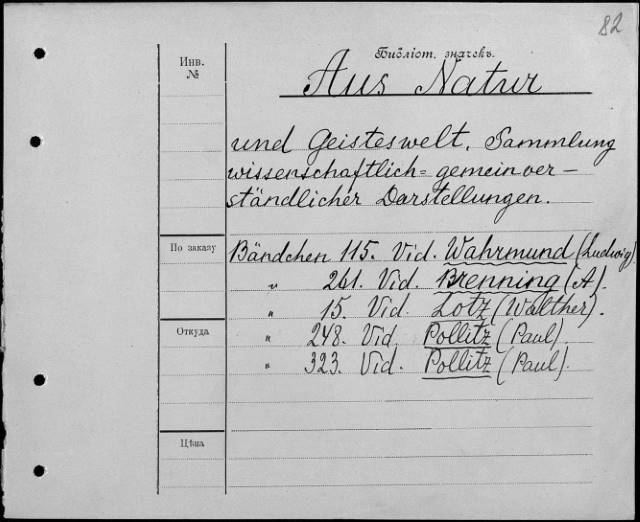 82
Библіот. значекъ.
Инв.
№
Aus Natur
und Geisteswelt. Sammlung
wissenschaftlich=gemeinver-
ständlicher Darstellungen.
По заказу
Bändchen 115. Vid. Wahrmund (Ludwig)
" 261. Vid. Brenning (A).
" 15. Vid. Lotz (Walther).
Откуда
" 248. Vid. Pollitz (Paul).
" 323. Vid. Pollitz (Paul).
Цѣна